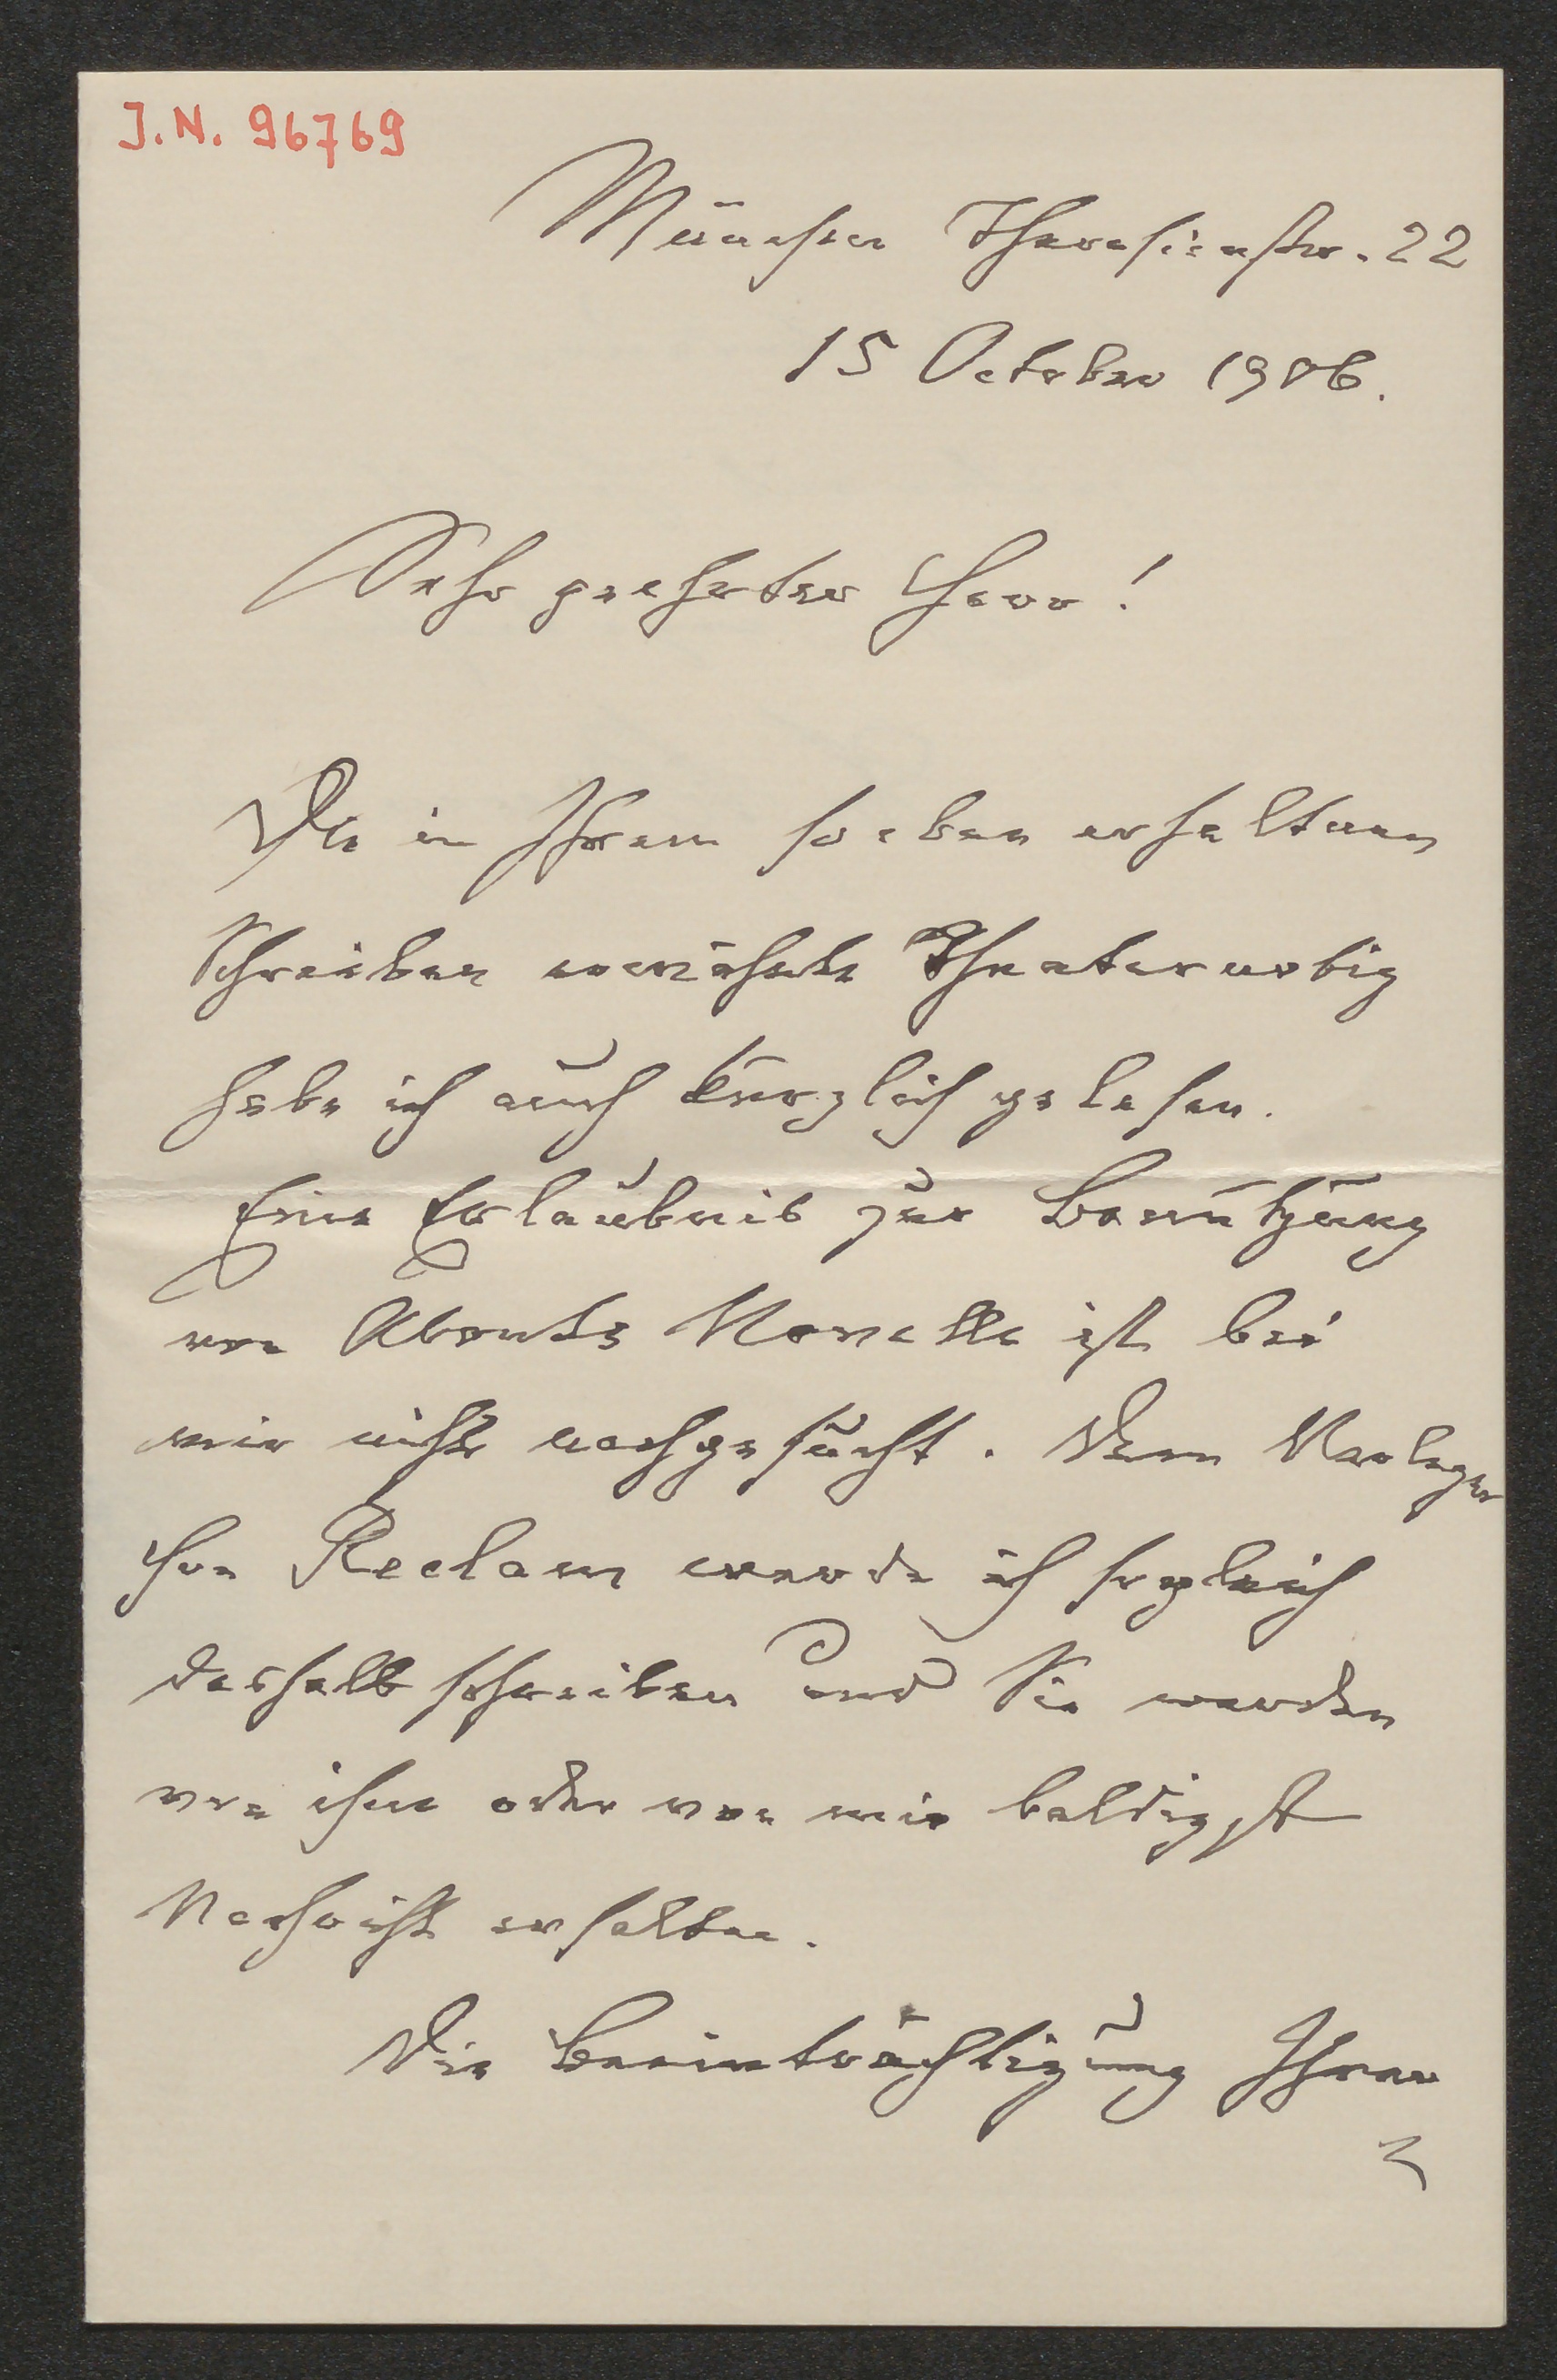 J.N. 96769
München Theresienstr. 22
15 October 1906.
Sehr geehrter Herr!
Die in Ihrem so eben erhaltenen
Schreiben erwähnte Theaternotiz
habe ich auch kürzlich gelesen.
Eine Erlaubnis zur Benützung
von Novelle ist bei
mir nicht nachgesucht. Dem Verleger
Hrn Reclam werde ich sogleich
deshalb schreiben und Sie werden
von ihm oder von mir baldigst
Nachricht erhalten.
Die Beeinträchtigung Ihrer